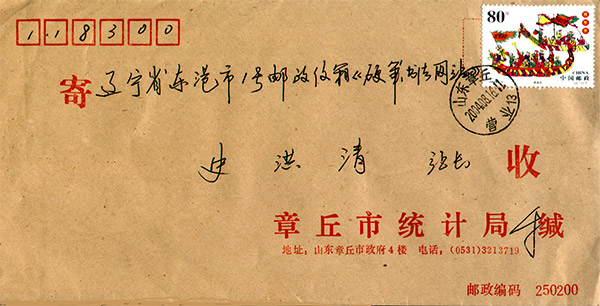 118300
80分
CHINA
中国邮政
寄 辽宁省东港市1号邮政信箱《硬笔书法网站》
山东章丘
2004.08.16.12
营业13
史洪清 站长 收
章丘市统计局 缄
地址：山东章丘市政府4楼 电话：(0531)3213719
邮政编码 250200